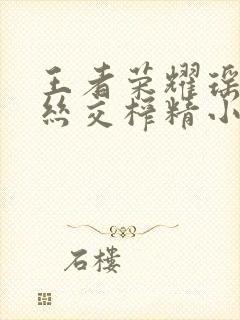 王者荣耀瑶
丝交榨精小
石楼